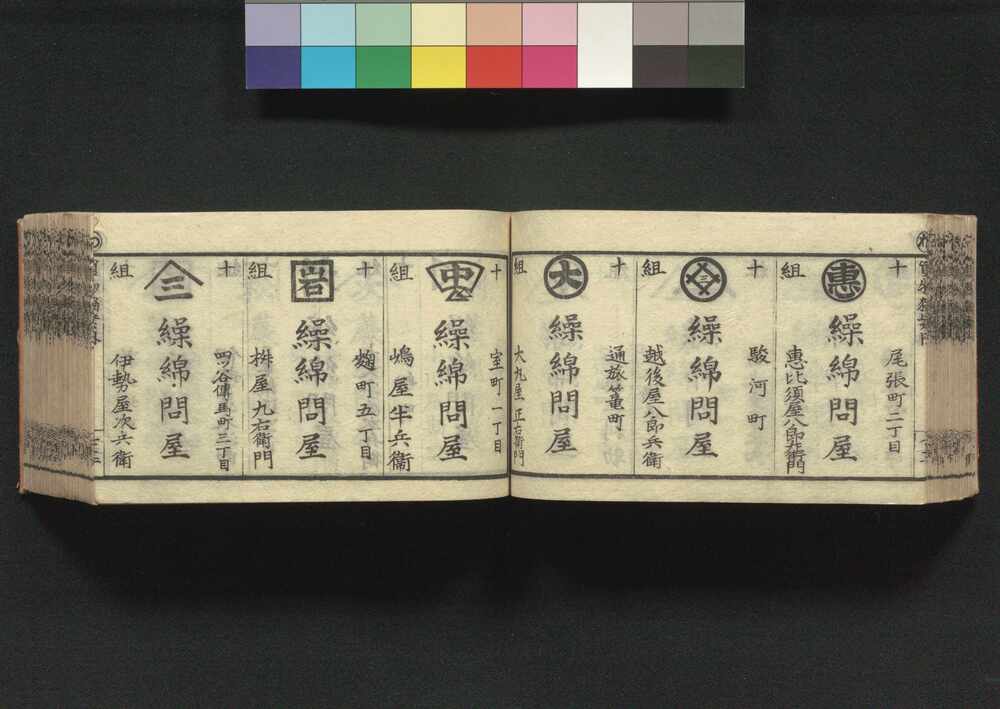 十
組
尾張町二丁目
惠
繰綿問屋
惠比須屋八郎左衛門
十
組
駿河町
三
繰綿問屋
越後屋八郎兵衛
十
組
通旅篭町
大
繰綿問屋
大丸屋正右衛門
十
組
室町一丁目
中
繰綿問屋
嶋屋半兵衞
十
組
麹町五丁目
岩
繰綿問屋
桝屋九右衛門
十
組
四谷傳馬町三丁目
三
繰綿問屋
伊勢屋次兵衛